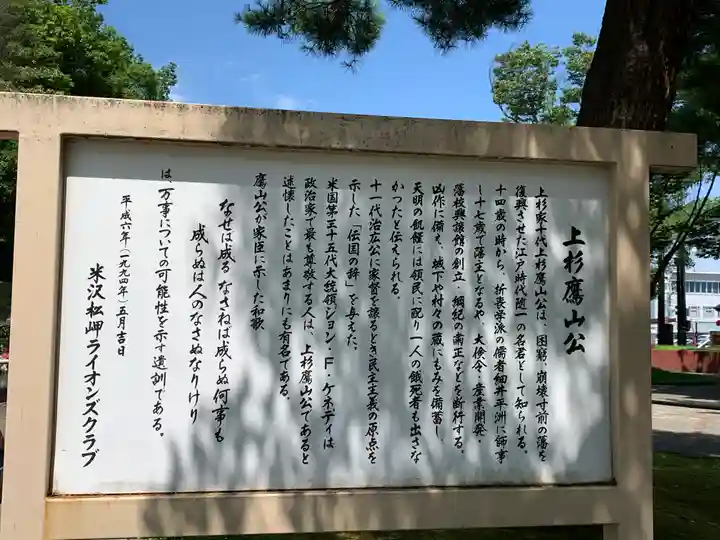 上杉鷹山公
上杉家十代上杉鷹山公は、困窮、崩壊寸前の藩を
復興させた江戸時代随一の名君として知られる。
十四歳の時から、折衷学派の儒者細井平洲に師事
し十七歳で藩主となるや、大倹令、産業開発、
藩校興譲館の創立、綱紀の粛正などを断行する。
凶作に備え、城下や村々の蔵にもみを備蓄し、
天明の飢饉には領民に配り一人の餓死者も出さな
かつたと伝えられる。
十一代治広公に家督を譲るとき民主主義の原点を
示した「伝国の辞」を与えた。
米国第三十五代大統領ジョン・F・ケネディは
政治家で最も尊敬する人は、上杉鷹山公であると
述懐したことはあまりにも有名である。
鷹山公が家臣に示した和歌
なせは成る なさねは成らぬ何事も
成らぬは人のなさぬなりけり
は、万事についての可能性を示す遺訓である。
平成六年(一九九四年)五月吉日
米沢松岬ライオンズクラブ